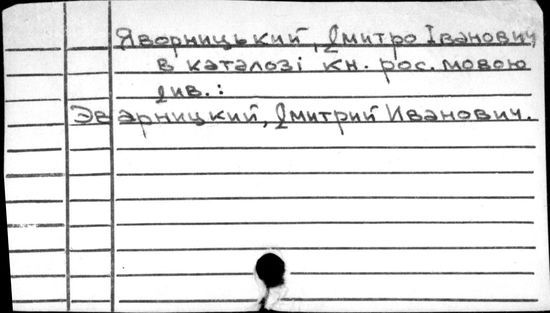 Яворницький, Дмитро Іванович
в каталозі кн. рос. мовою
див.:
Эварницкий, Дмитрий Иванович.